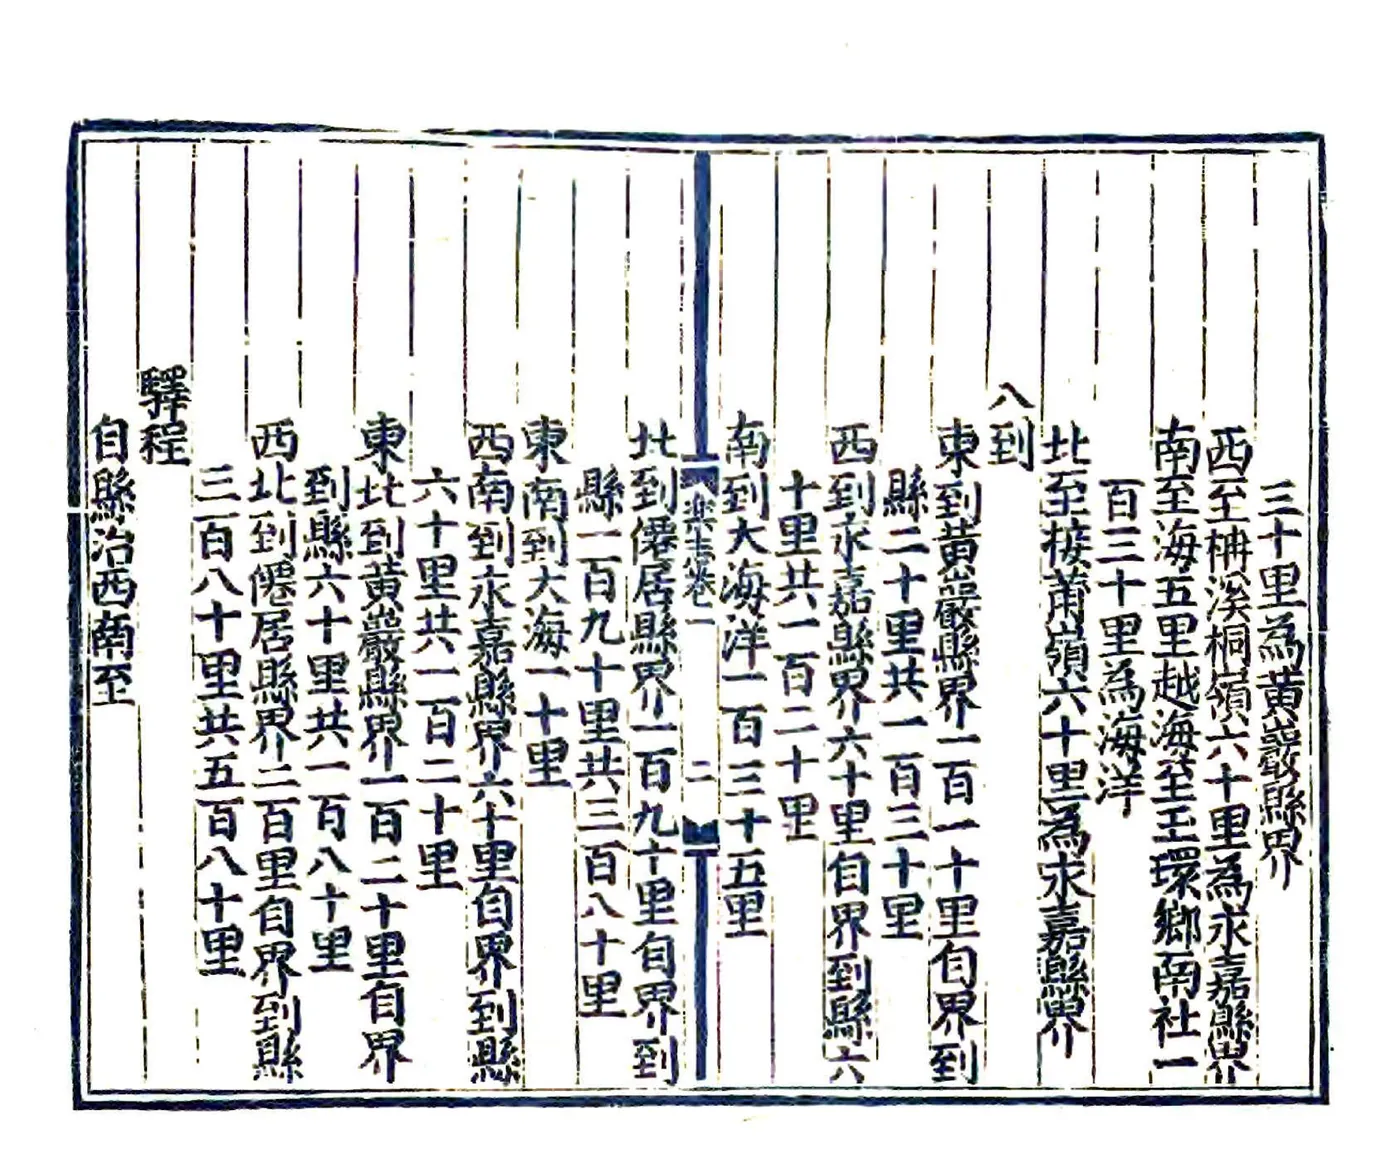 三十里為黃巖縣界
西至柟溪桐嶺六十里為永嘉縣界
南至海五里越海至玉環鄉南社一
百三十里為海洋
北至接莆嶺六十里為永嘉縣界
八到
東到黃巖縣界一百一十里自界到
縣二十里共一百三十里
西到永嘉縣界六十里自界到縣六
十里共一百二十里
南到大海洋一百三十五里
樂志卷一
二
北到僊居縣界一百九十里自界到
縣一百九十里共三百八十里
東南到大海一十里
西南到永嘉縣界六十里自界到縣
六十里共一百二十里
東北到黃巖縣界一百二十里自界
到縣六十里共一百八十里
西北到僊居縣界二百里自界到縣
三百八十里共五百八十里
驛程
自縣治西南至